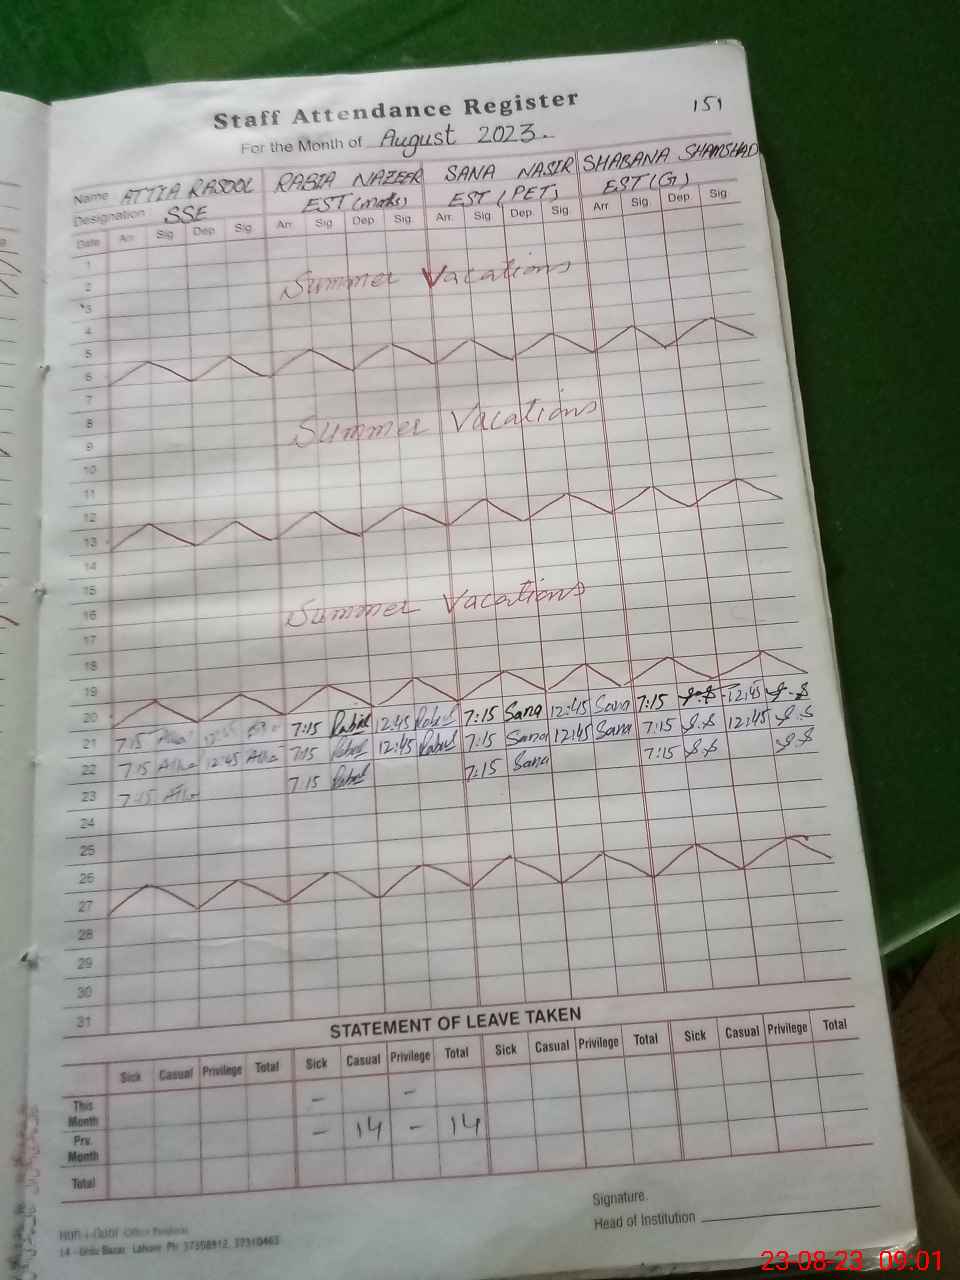 Staff Attendance Register
151
For the Month of August 2023.
Name ATTIA RASOOL RABIA NAZEER SANA NASIR SHABANA SHAMSHAD
Designation SSE EST (maths) EST (PET) EST (G)
Date Arr. Sig. Dep. Sig. Arr. Sig. Dep. Sig. Arr. Sig. Dep. Sig. Arr. Sig. Dep. Sig.
1
2 Summer Vacations
3
4
5
6
7
8 Summer Vacations
9
10
11
12
13
14
15
16 Summer Vacations
17
18
19
20
21 7:15 Attia 12:45 7:15 Rabia 12:45 Rabia 7:15 Sana 12:45 Sana 7:15 S.S 12:45 S.S
22 7:15 Attia 12:45 Attia 7:15 Rabia 12:45 Rabia 7:15 Sana 12:45 Sana 7:15 S.S 12:45 S.S
23 7:15 Attia 7:15 Rabia 7:15 Sana 7:15 S.S S.S
24
25
26
27
28
29
30
31
STATEMENT OF LEAVE TAKEN
Sick Casual Privilege Total Sick Casual Privilege Total Sick Casual Privilege Total Sick Casual Privilege Total
This Month - -
Prv. Month - 14 - 14
Total
Signature.
Head of Institution
14 - Urdu Bazar, Lahore. Ph: 37308912, 37310463
23-08-23 09:01